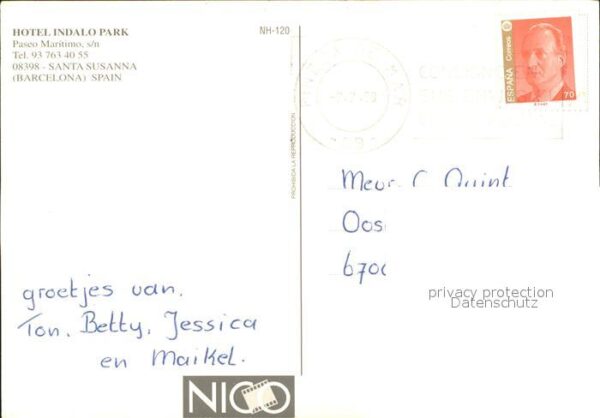 HOTEL INDALO PARK
Paseo Marítimo, s/n
Tel. 93 763 40 55
08398 - SANTA SUSANNA
(BARCELONA) SPAIN
NH-120
PROHIBIDA LA REPRODUCCION
ESPAÑA
Correos
70
Oos
6700
privacy protection
Datenschutz
groetjes van.
Ton, Betty, Jessica
en Maikel.
NICO